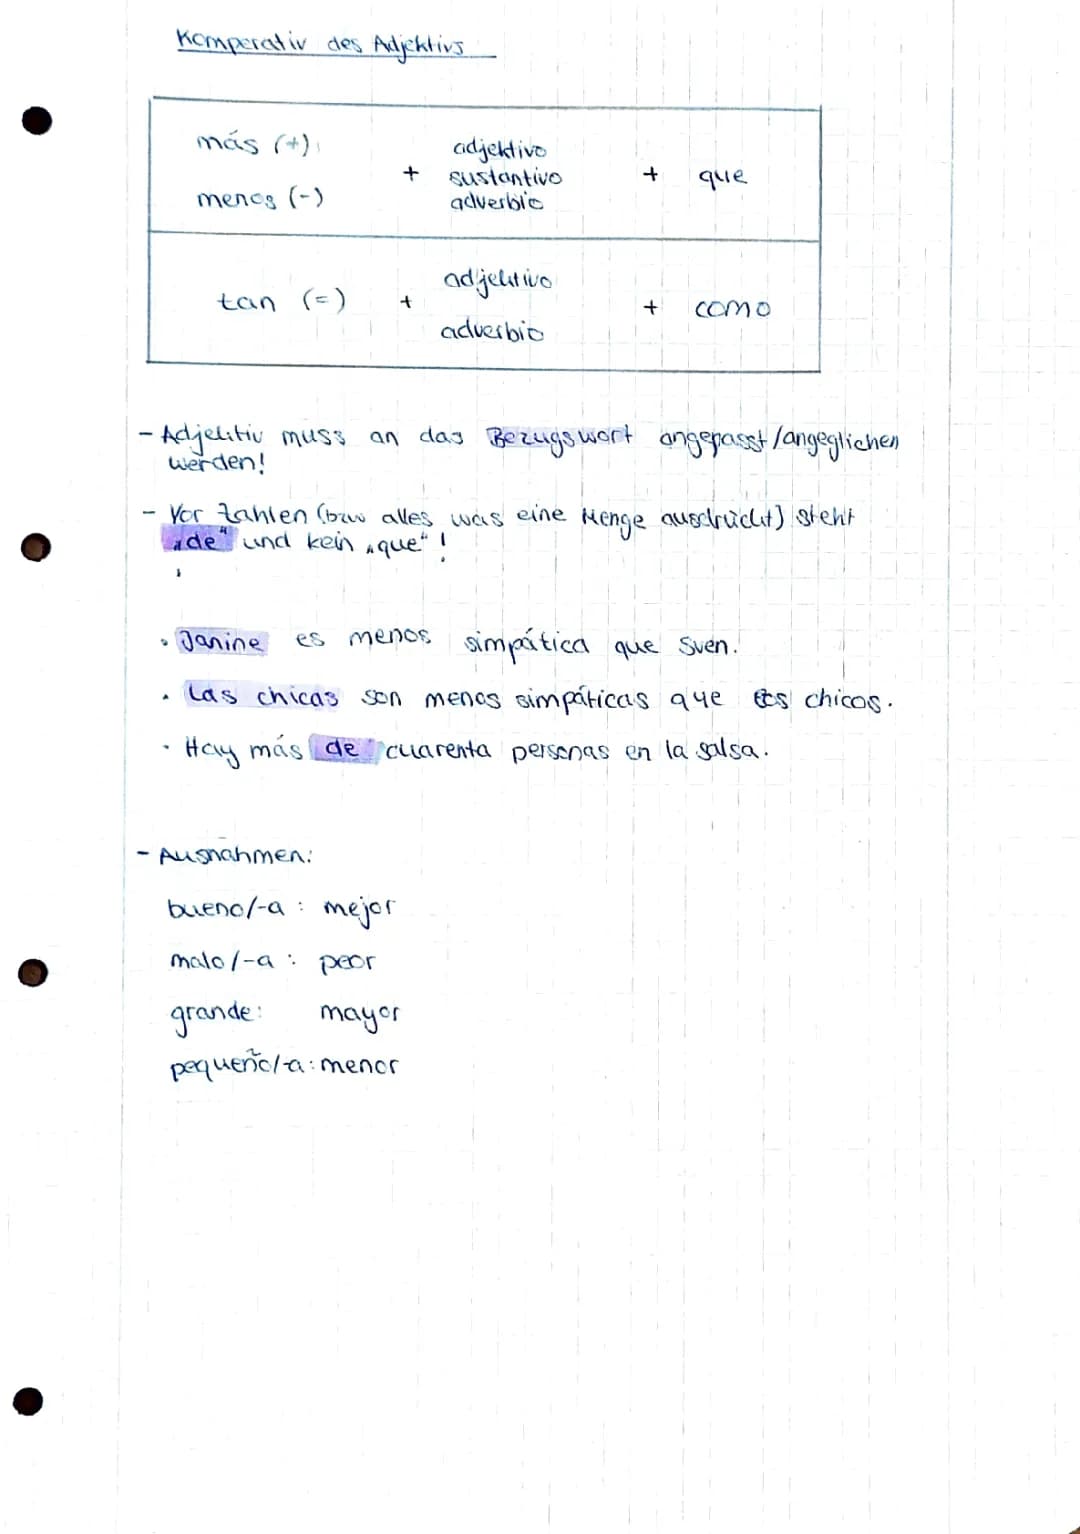 Komparativ des Adjektivs
más (+)
menos (-)
+
adjektivo
sustantivo
adverbio
+ que
tan (=)
+
adjektivo
adverbio
+ como
- Adjektiv muss an das Bezugswort angepasst/angeglichen
werden!
- Vor Zahlen (bzw alles was eine Menge ausdrückt) steht
„de" und kein „que"!
• Janine es menos simpática que Sven.
• Las chicas son menos simpáticas que los chicos.
• Hay más de cuarenta personas en la salsa.
- Ausnahmen:
bueno/-a : mejor
malo/-a : peor
grande: mayor
pequeño/-a: menor